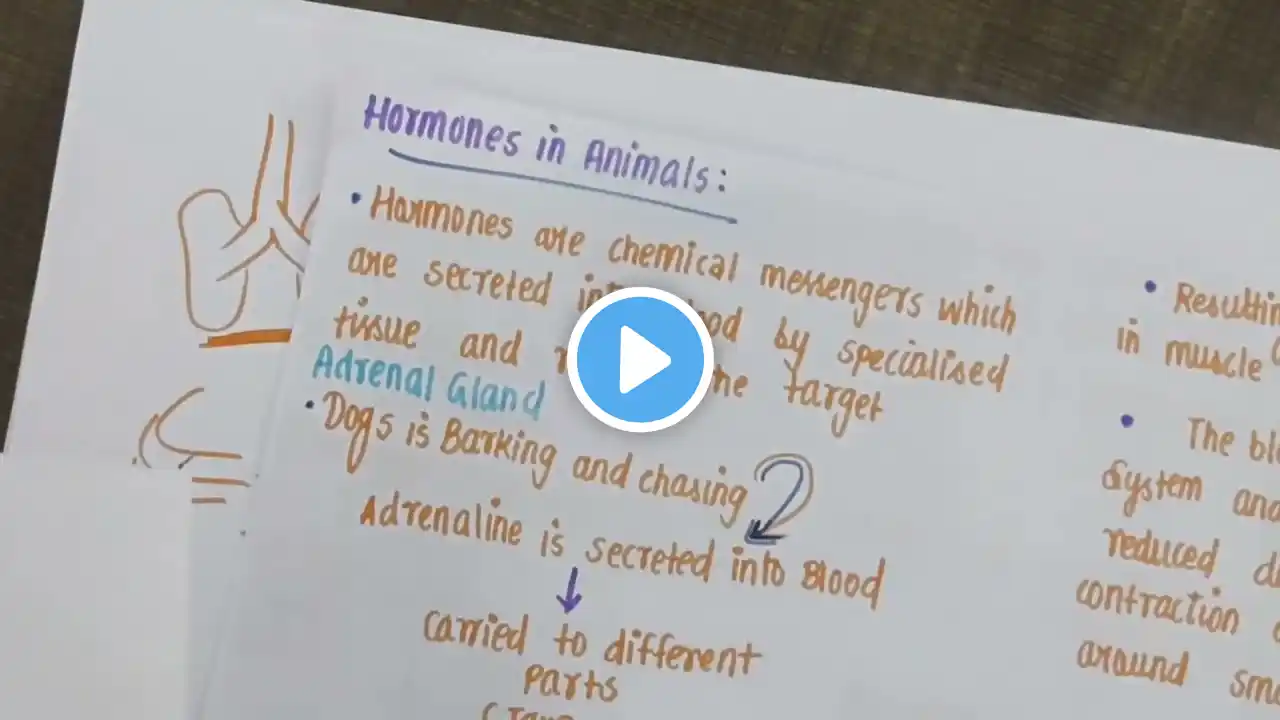 Hormones in Animals:
• Hormones are chemical messengers which
are secreted by specialised
tissue and target
Adrenal Gland
• Dogs is Barking and chasing
Adrenaline is secreted into Blood
carried to different
parts
• Resulti
in muscle
• The bl
System an
reduced d
contraction
around sm